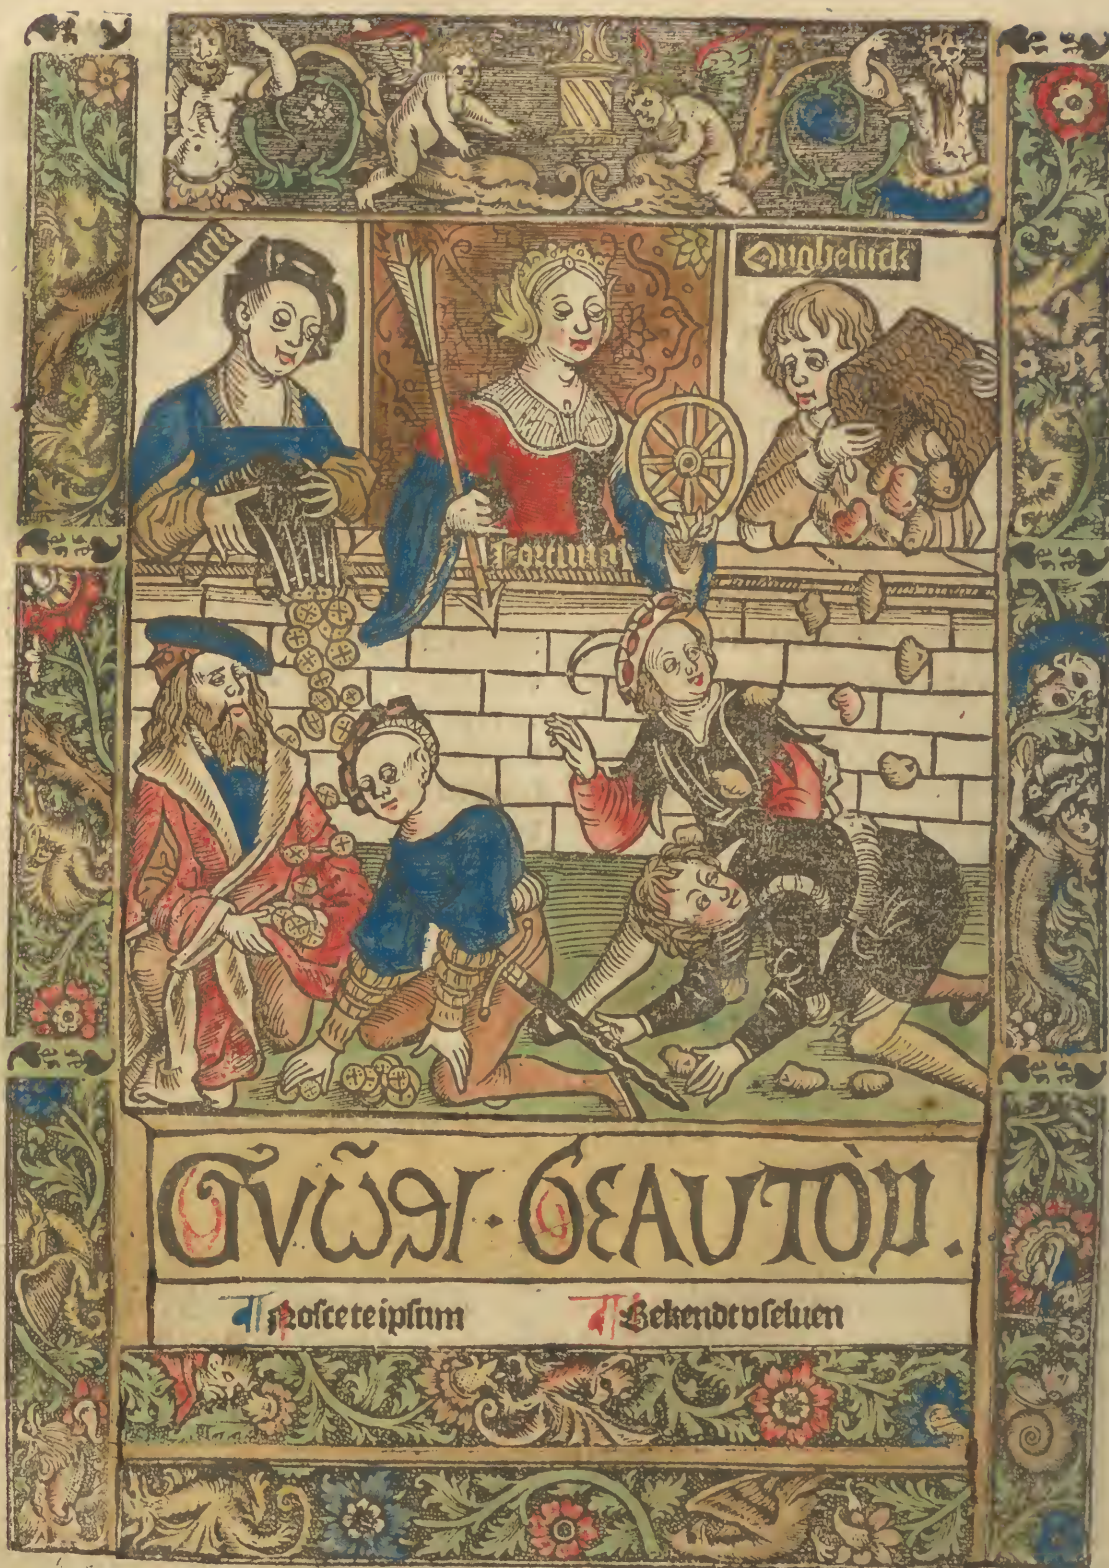 Geluck
Ongheluck
Fortuna
ΓΝῶΘΙ · ΣΕΑΥΤὸΝ.
¶ Nosce teipſum ¶ Bekendt vſeluen